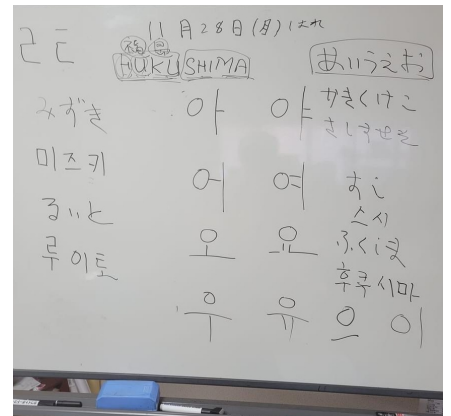 11月28日(月)はれ
福島
ㄹㄷ
HUKU SHIMA
あいうえお
みずき
미즈키
るいと
루이토
아 야
어 여
오 요
우 유 으 이
かきくけこ
さしすせそ
すし
스시
ふくしま
후쿠시마